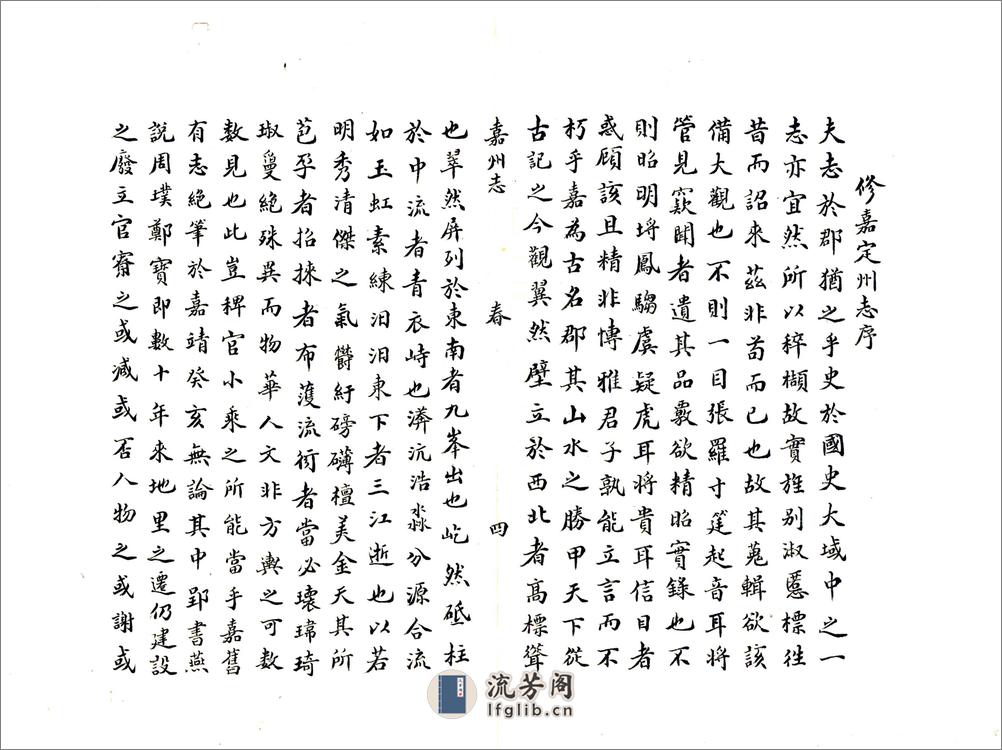 修嘉定州志序
夫志於郡猶之乎史於國史大域中之一
志亦宜然所以稡擷故實旌别淑慝標徃
昔而詔來茲非苟而已也故其蒐輯欲該
備大觀也不則一目張羅寸筳起音耳将
管見窾聞者遺其品覈欲精昭實錄也不
則昭明埒鳳騶虞疑虎耳将貴耳信目者
惑顧該且精非博雅君子孰能立言而不
朽乎嘉為古名郡其山水之勝甲天下從
古記之今觀翼然壁立於西北者髙標聳
嘉州志
春
四
也翠然屏列於東南者九峯出也屹然砥柱
於中流者青衣峙也漭沆浩淼分源合流
如玉虹素練汨汨東下者三江逝也以若
明秀清傑之氣欝紆磅礴檀美金天其所
苞孕者招捸者布濩流衍者當必瓌瑋琦
琡敻絶殊異而物華人文非方輿之可数
数見也此豈稗官小乘之所能當乎嘉舊
有志絶筆於嘉靖癸亥無論其中郢書燕
說周墣鄭寶即數十年來地里之遷仍建設
之廢立官寮之或減或否人物之或謝或
流芳阁
lfglib.cn